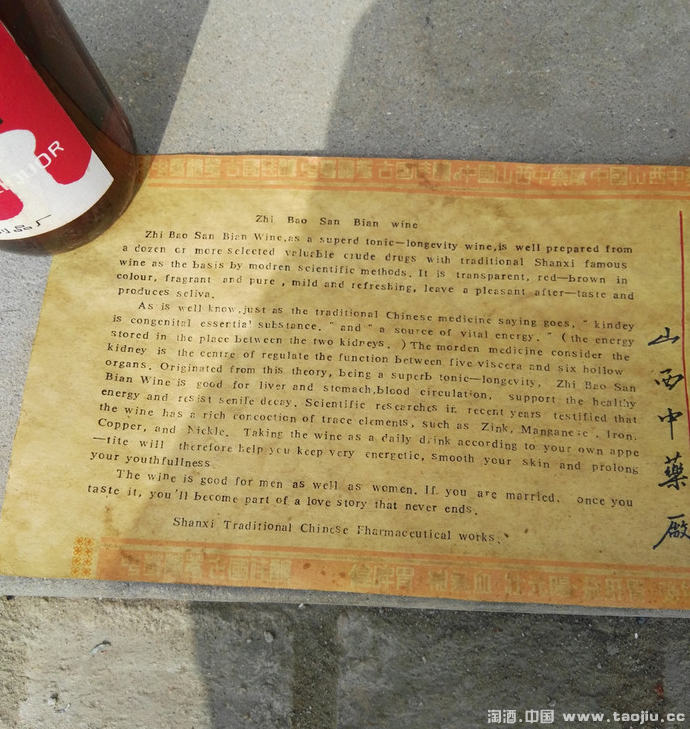 QUOR
Zhi Bao San Bian wine
Zhi Bao San Bian Wine,as a superd tonic—longevity wine,is well prepared from
a dozen or more selected valuable crude drugs with traditional Shanxi famous
wine as the basis by modren scientific methods. It is transparent, red—brown in
colour, fragrant and pure , mild and refreshing, leave a pleasant after—taste and
produces seliva.
As is well know,just as the traditional Chinese medicine saying goes, “ kindey
is congenital essential substance. ” and “ a source of vital energy. ” ( the energy
stored in the place between the two kidneys. ) The morden medicine consider the
kidney is the centre of regulate the function between five viscera and six hollow
organs. Originated from this theory, being a superb tonic—longevity, Zhi Bao San
Bian Wine is good for liver and stomach,blood circulation, support the healthy
energy and resist senife decay. Scientific researches in recent years testified that
the wine has a rich concoction of trace elements, such as Zink, Manganese, Iron,
Copper, and Nickle. Taking the wine as a daily drink according to your own appe
—tite will therefore help you keep very energetic, smooth your skin and prolong
your youthfullness
The wine is good for men as well as women. If you are married, once you
taste it, you'll become part of a love story that never ends.
Shanxi Traditional Chinese Pharmaceutical works.
山西中藥廠
淘酒.中国 www.taojiu.cc